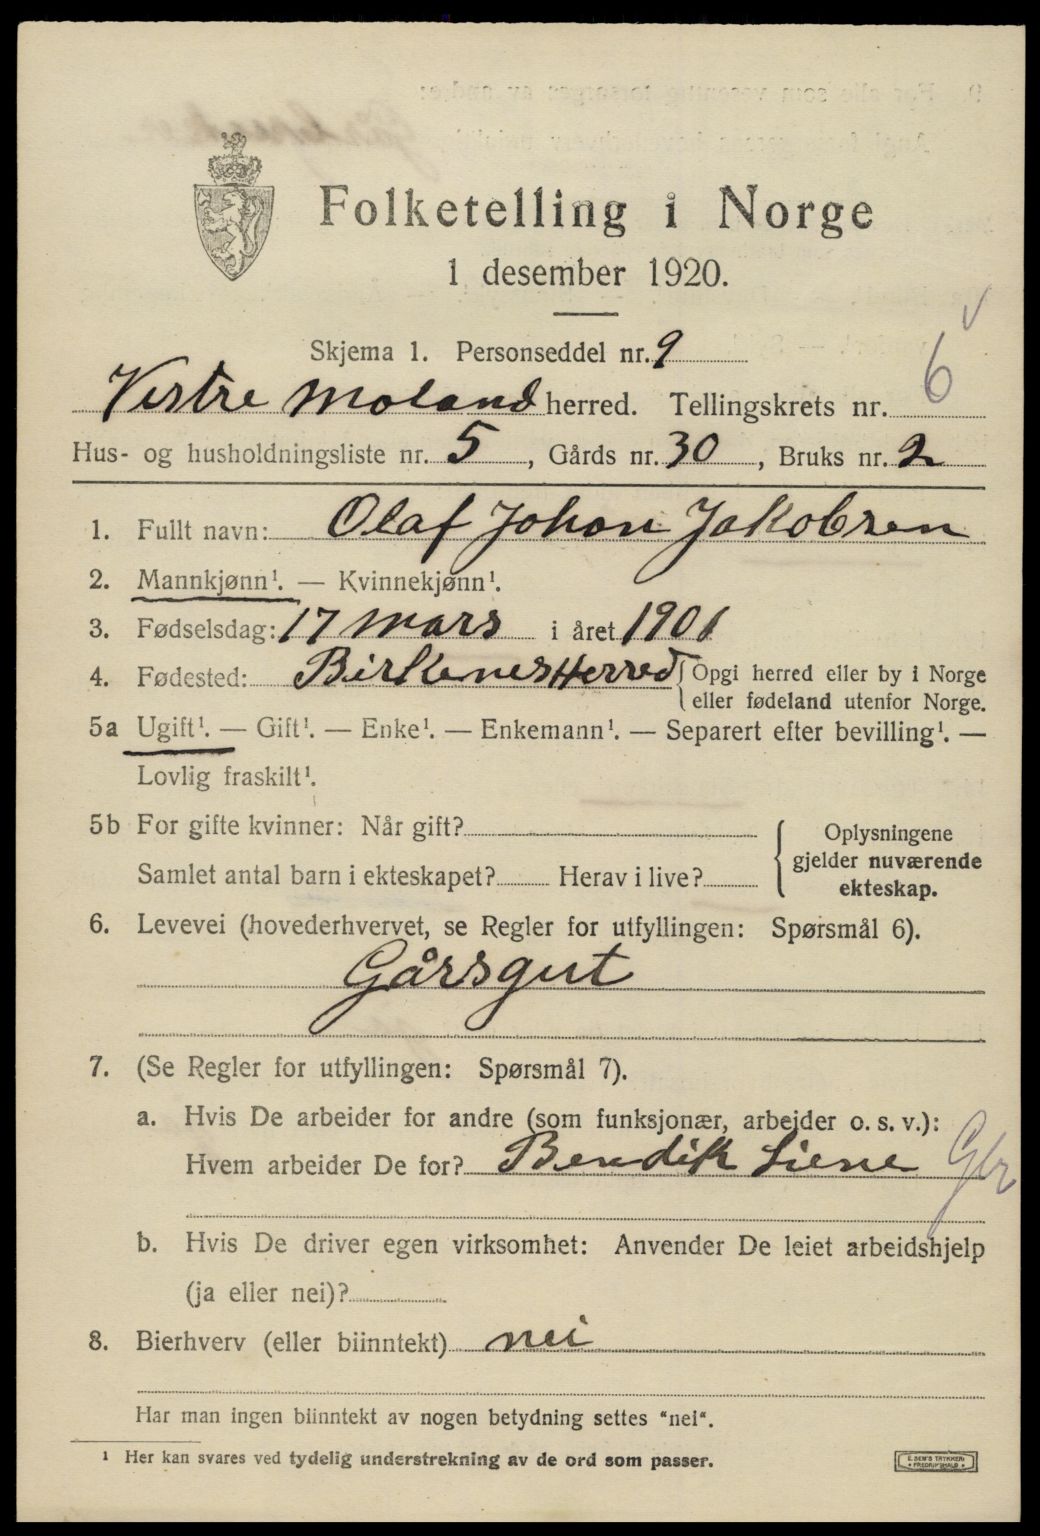 Folketelling i Norge
1 desember 1920.
Skjema 1. Personseddel nr. 9
Vestre Moland herred. Tellingskrets nr. 6
Hus- og husholdningsliste nr. 5, Gårds nr. 30, Bruks nr. 2
1. Fullt navn: Olaf Johan Jakobsen
2. Mannkjønn¹. — Kvinnekjønn¹.
3. Fødselsdag: 17 mars i året 1901
4. Fødested: Birkenes Herred { Opgi herred eller by i Norge
eller fødeland utenfor Norge.
5a Ugift¹. — Gift¹. — Enke¹. — Enkemann¹. — Separert efter bevilling¹. —
Lovlig fraskilt¹.
5b For gifte kvinner: Når gift?
Samlet antal barn i ekteskapet? Herav i live?
{ Oplysningene
gjelder nuværende
ekteskap.
6. Levevei (hovederhvervet, se Regler for utfyllingen: Spørsmål 6).
Gårsgut
7. (Se Regler for utfyllingen: Spørsmål 7).
a. Hvis De arbeider for andre (som funksjonær, arbeider o. s. v.):
Hvem arbeider De for? Bendik Liene Gbr
b. Hvis De driver egen virksomhet: Anvender De leiet arbeidshjelp
(ja eller nei)?
8. Bierhverv (eller biinntekt) nei
Har man ingen biinntekt av nogen betydning settes "nei".
¹ Her kan svares ved tydelig understrekning av de ord som passer.
E. SEM'S TRYKKERI
FREDRIKSHALD